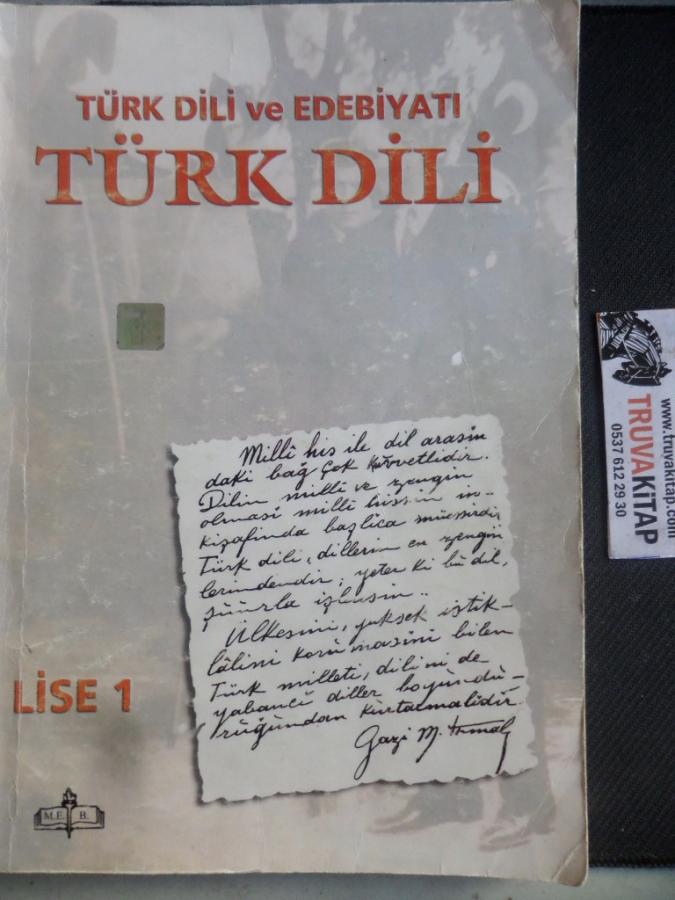 TÜRK DİLİ ve EDEBİYATI
TÜRK DİLİ
Millî his ile dil arasın
daki bağ çok kuvvetlidir.
Dilin millî ve zengin
olması millî hissin in-
kişafında başlıca müessirdir
Türk dili, dillerin en zengin
lerindendir; yeter ki bu dil,
şuurla işlensin..
Ülkesini, yüksek istik-
lâlini korumasını bilen
Türk milleti, dilini de
yabancı diller boyundu-
ruğundan kurtarmalıdır
Gazi M. Kemal
LİSE 1
M.E. B.
www.truvakitap.com
TRUVAKİTAP
0537 612 29 30